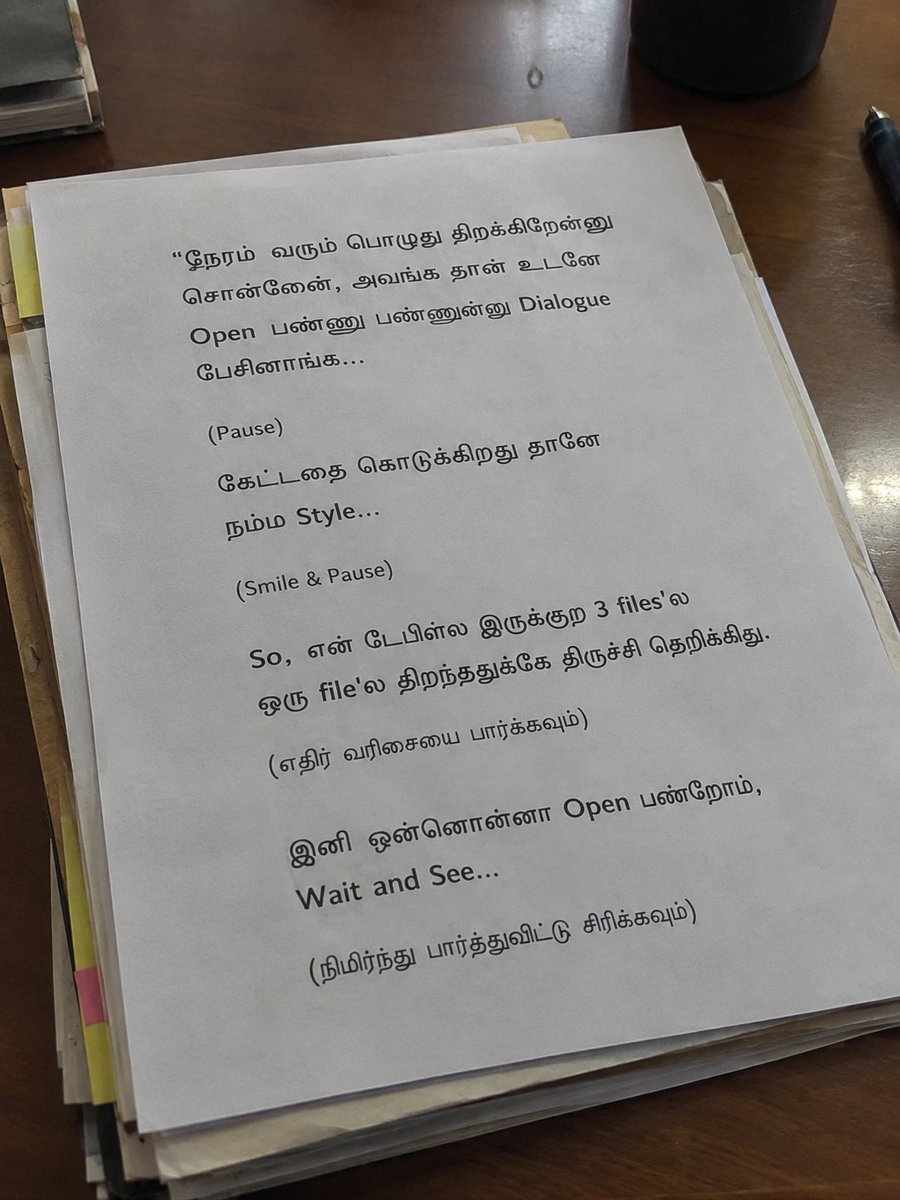 “நேரம் வரும் பொழுது திறக்கிறேன்னு
சொன்னேன், அவங்க தான் உடனே
Open பண்ணு பண்ணுன்னு Dialogue
பேசினாங்க...
(Pause)
கேட்டதை கொடுக்கிறது தானே
நம்ம Style...
(Smile & Pause)
So, என் டேபிள்ல இருக்குற 3 files'ல
ஒரு file'ல திறந்ததுக்கே திருச்சி தெறிக்கிது.
(எதிர் வரிசையை பார்க்கவும்)
இனி ஒன்னொன்னா Open பண்றோம்,
Wait and See...
(நிமிர்ந்து பார்த்துவிட்டு சிரிக்கவும்)